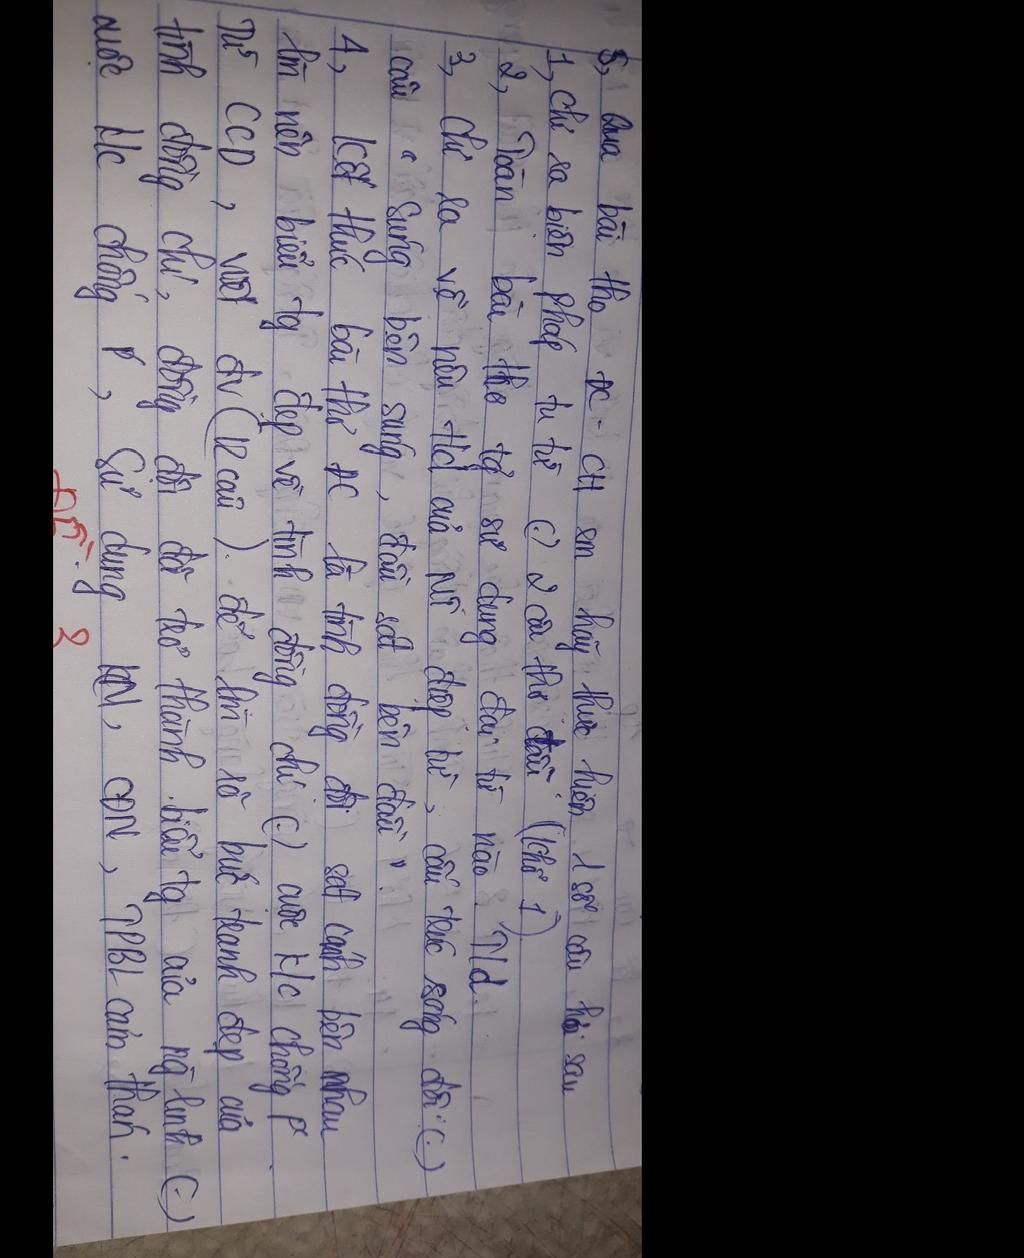 8, Qua bài thơ ĐC - CH em hãy thực hiện 1 số câu hỏi sau
1, Chỉ ra biện pháp tu từ (-) 2 câu thơ đầu (khổ 1)
2, Toàn bài thơ tg sử dụng đại từ nào T/d
3, chỉ ra và nêu t/d của NT điệp từ, cấu trúc song đôi: (-)
câu "Súng bên súng, đầu sát bên đầu".
4, Kết thúc bài thơ ĐC là tình đồng đội sát cánh bên nhau
lm nên biểu tg đẹp về tình đồng chí (-) cuộc k/c chống P.
Từ CCD, viết đv (12 câu). để lm rõ bức tranh đẹp của
tình đồng chí, đồng đội đã trở thành biểu tg của ng lính (-)
cuộc k/c chống P, Sử dụng KN, CĐN, TPBL cảm thán.
ĐỀ. 2